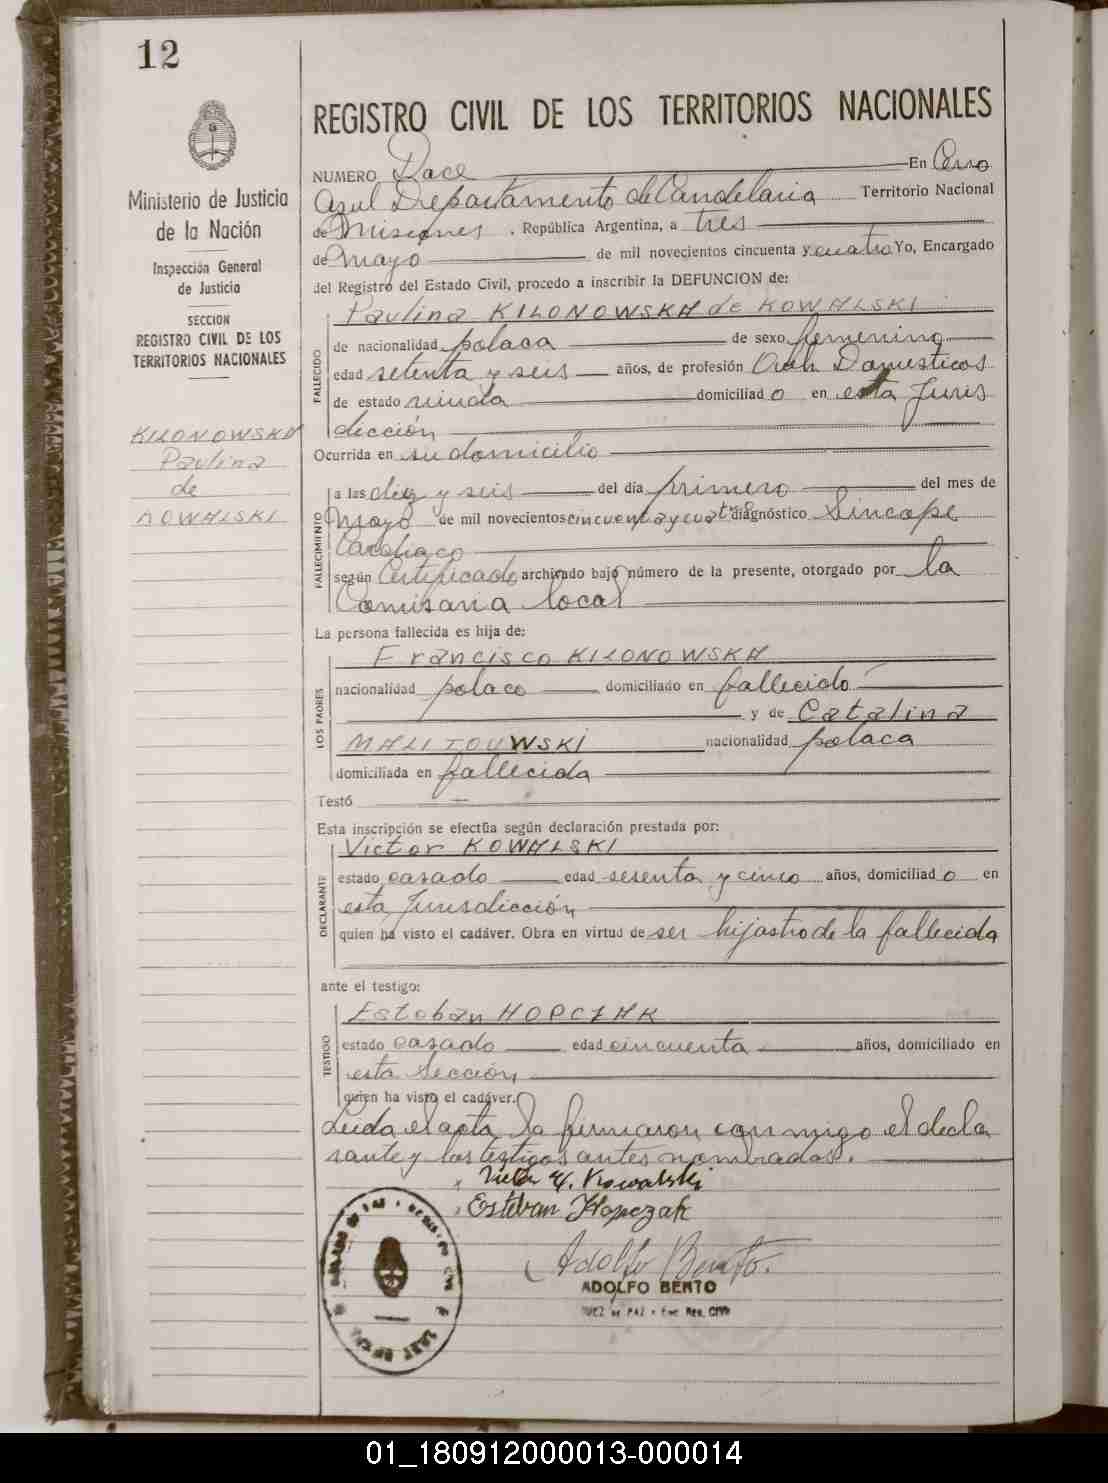 12
Ministerio de Justicia
de la Nación
Inspección General
de Justicia
SECCION
REGISTRO CIVIL DE LOS
TERRITORIOS NACIONALES
KILONOWSKA
Paulina
de
KOWALSKI
REGISTRO CIVIL DE LOS TERRITORIOS NACIONALES
NUMERO Doce En Cerro
Azul Departamento de Candelaria Territorio Nacional
de Misiones, República Argentina, a tres
de Mayo de mil novecientos cincuenta y cuatro Yo, Encargado
del Registro del Estado Civil, procedo a inscribir la DEFUNCION de:
Paulina KILONOWSKA de KOWALSKI
FALLECIDO
de nacionalidad polaca de sexo femenino
edad setenta y seis años, de profesión Queh Domesticos
de estado viuda domiciliado en esta Juris
dicción
Ocurrida en su domicilio
FALLECIMIENTO
a las diez y seis del día primero del mes de
Mayo de mil novecientos cincuenta y cuatro diagnóstico Sincope
Cardiaco
según Certificado archivado bajo número de la presente, otorgado por la
Comisaria local
La persona fallecida es hija de:
LOS PADRES
Francisco KILONOWSKA
nacionalidad polaco domiciliado en fallecido
y de Catalina
MALITOUWSKI nacionalidad polaca
domiciliada en fallecida
Testó
Esta inscripción se efectúa según declaración prestada por:
DECLARANTE
Victor KOWALSKI
estado casado edad sesenta y cinco años, domiciliado en
esta Jurisdicción
quien ha visto el cadáver. Obra en virtud de ser hijastro de la fallecida
ante el testigo:
TESTIGO
Esteban HOPCZAK
estado casado edad cincuenta años, domiciliado en
esta Sección
quien ha visto el cadáver.
Leida el acta, la firmaron conmigo el decla
rante y los testigos antes nombrados.
Kowalski
Esteban Hopczak
Adolfo Bento.
ADOLFO BENTO
JUEZ DE PAZ - Enc. Reg. Civil
01_180912000013-000014